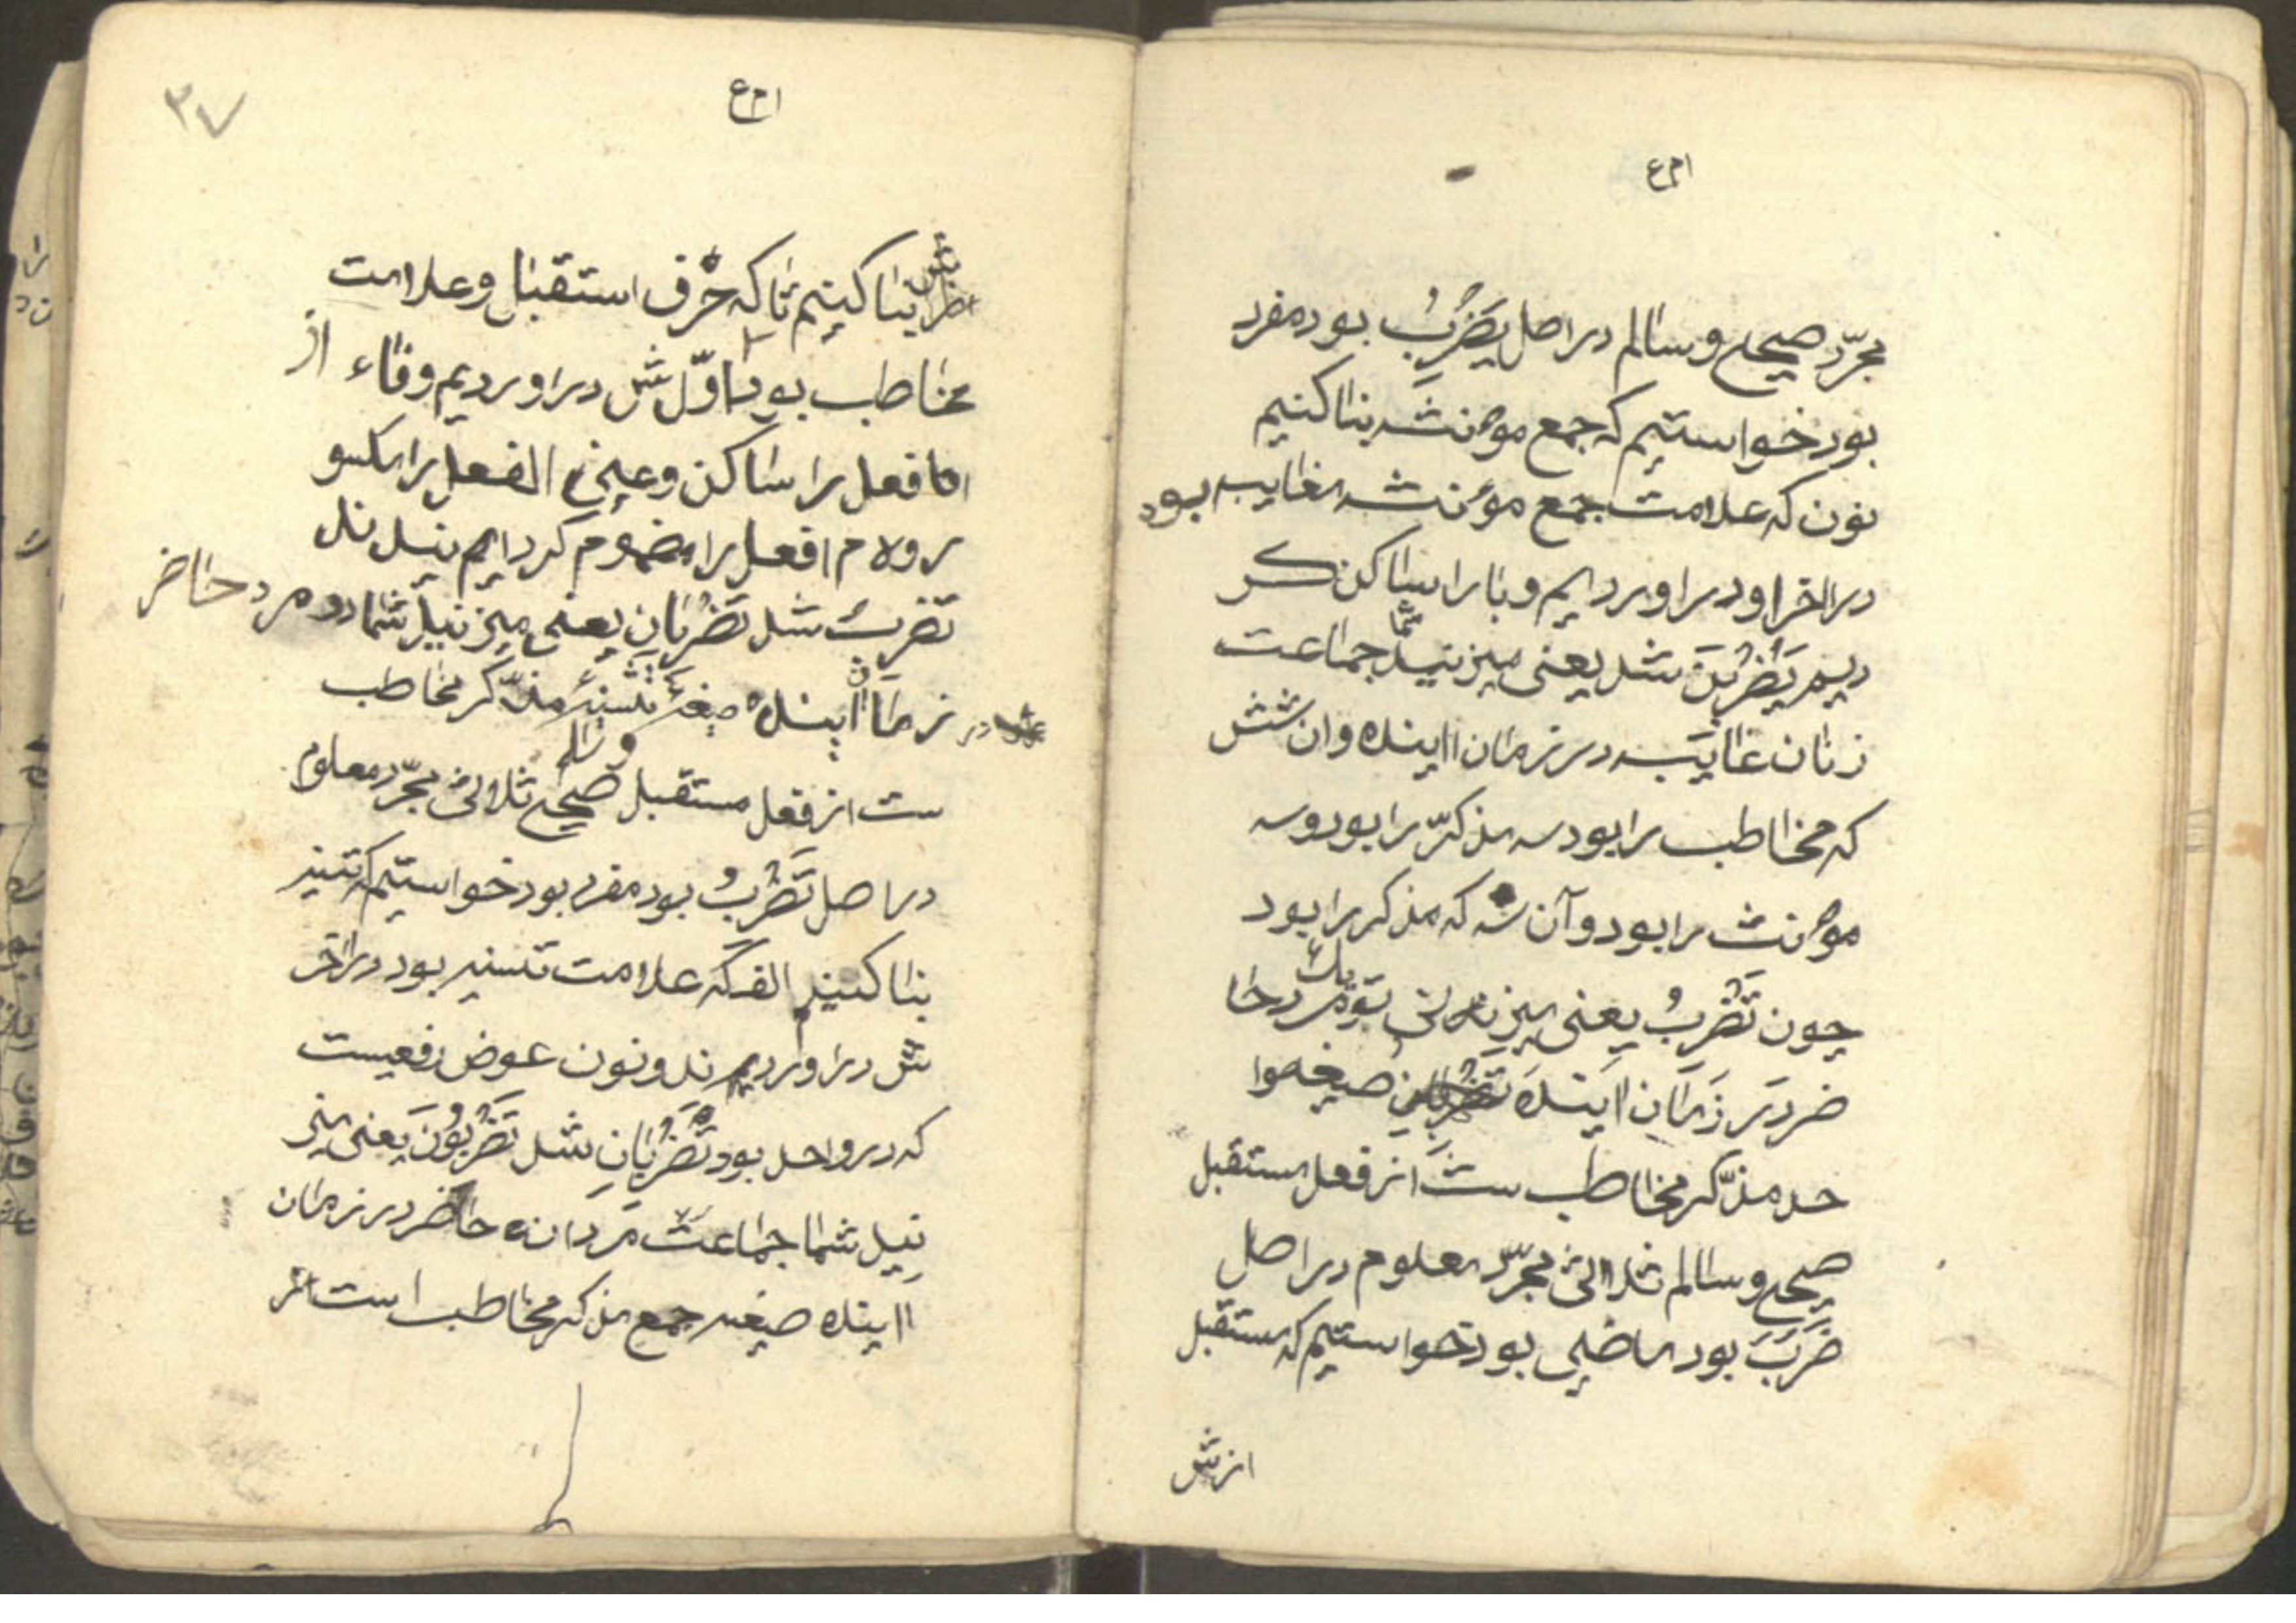 مجرّد صحیح و سالم در اصل یَضْرِبُ بود مفرد
بود خواستیم که جمع موٴنثه بنا کنیم
نون که علامت جمع موٴنثه غایبه بود
در اخر او در اوردیم و با را ساکن کر
دیم یَضْرِبْنَ شد یعنی میزنید شما جماعت
زنان غایبه در زمان اینده وان شش
که مخاطب را بود سه مذکرّ را بود و سه
موٴنث را بود و آن سه که مذکر را بود
چون تَضْرِبُ یعنی میزنی تو یک مرد حا
ضر در زمان اینده صیغه وا
حد مذّکر مخاطب ست از فعل مستقبل
صحیح و سالم ثلاثی مجرّد معلوم در اصل
ضَرَبَ بود ماضی بود خواستیم که مستقبل
ازش
۳۷
بنا کنیم تا که حرف استقبال و علامت
مخاطب بود اوّل ش در اوردیم و فاء از
فا فعل را ساکن و عین الفعل را مکسو
ر و لام افعل را مضموم کردیم
تضرب شد تَضْرِبَانِ یعنی میزنید شما دو مرد حاضر
در زمان اینده صیغهٔ تثنیهٔ مذّکر مخاطب
ست از فعل مستقبل صحیح و سالم ثلاثی مجرّد معلوم
در اصل تَضْرِبُ بود مفرد بود خواستیم که تثنیه
بنا کنیم الف که علامت تثنیه بود در اخر
ش در اوردیم و نون عوض رفعیست
که در واحد بود تَضْرِبَانِ شد تَضْرِبُونَ یَعنی میز
نید شما جماعت مردانه حاضر در زمان
اینده صیغه جمع مذکر مخاطب است از